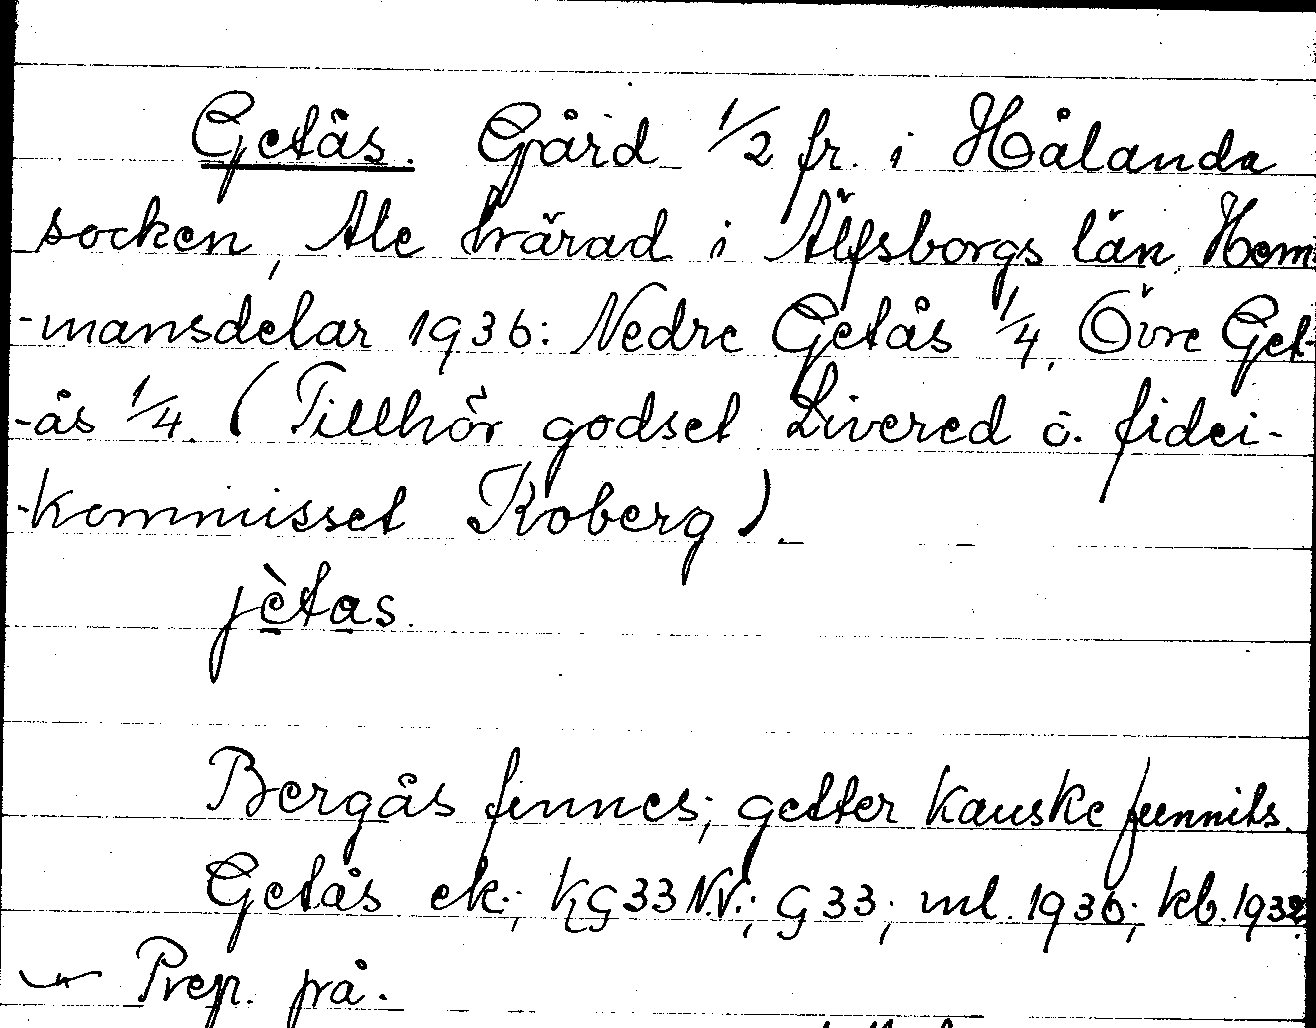 Getås. Gård 1/2 fr. i Hålanda
socken, Ale härad i Älfsborgs län. Hem-
-mansdelar 1936: Nedre Getås 1/4, Övre Get-
-ås 1/4. (Tillhör godset Livered o. fidei-
-kommisset Koberg).
jètas.
Bergås finnes; getter kanske funnits.
Getås ek.; KG33 N.V.; G33; ml. 1936; kb. 1932.
Prep. på.